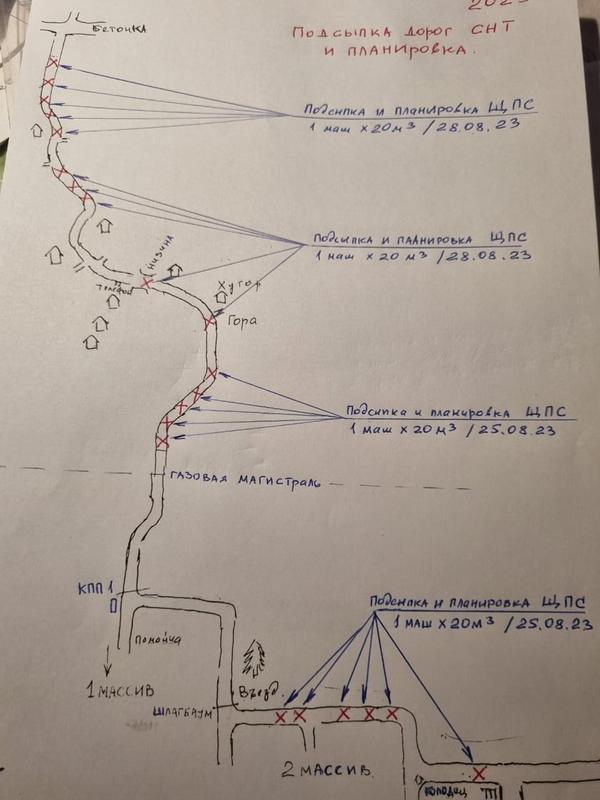 Бетонка
Подсыпка дорог СНТ
и планировка.
Подсыпка и планировка ЩПС
1 маш х 20 м³ / 28.08.23
Подсыпка и планировка ЩПС
1 маш х 20 м³ / 28.08.23
Низина
Хутор
Гора
Подсыпка и планировка ЩПС
1 маш х 20 м³ / 25.08.23
Газовая магистраль
КПП 1
Подсыпка и планировка ЩПС
1 маш х 20 м³ / 25.08.23
Помойка
1 массив
Въезд
Шлагбаум
2 массив
Колодец